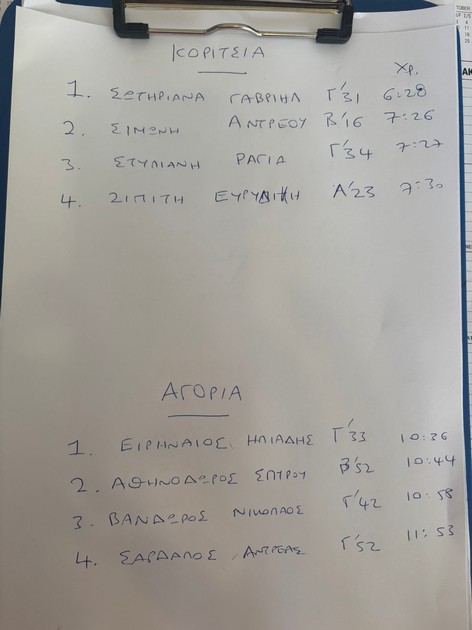 ΚΟΡΙΤΣΙΑ
Χρ.
1. ΣΩΤΗΡΙΑΝΑ ΓΑΒΡΙΗΛ Γ'31 6:28
2. ΣΙΜΩΝΗ ΑΝΤΡΕΟΥ Β'16 7:26
3. ΣΤΥΛΙΑΝΗ ΡΑΓΙΑ Γ'34 7:27
4. ΖΙΠΙΤΗ ΕΥΡΥΔΙΚΗ Α'23 7:30
ΑΓΟΡΙΑ
1. ΕΙΡΗΝΑΙΟΣ ΗΛΙΑΔΗΣ Γ'33 10:36
2. ΑΘΗΝΟΔΩΡΟΣ ΣΠΥΡΟΥ Β'52 10:44
3. ΒΑΝΔΩΡΟΣ ΝΙΚΟΛΑΟΣ Γ'42 10:58
4. ΣΑΡΔΑΛΟΣ ΑΝΤΡΕΑΣ Γ'52 11:53